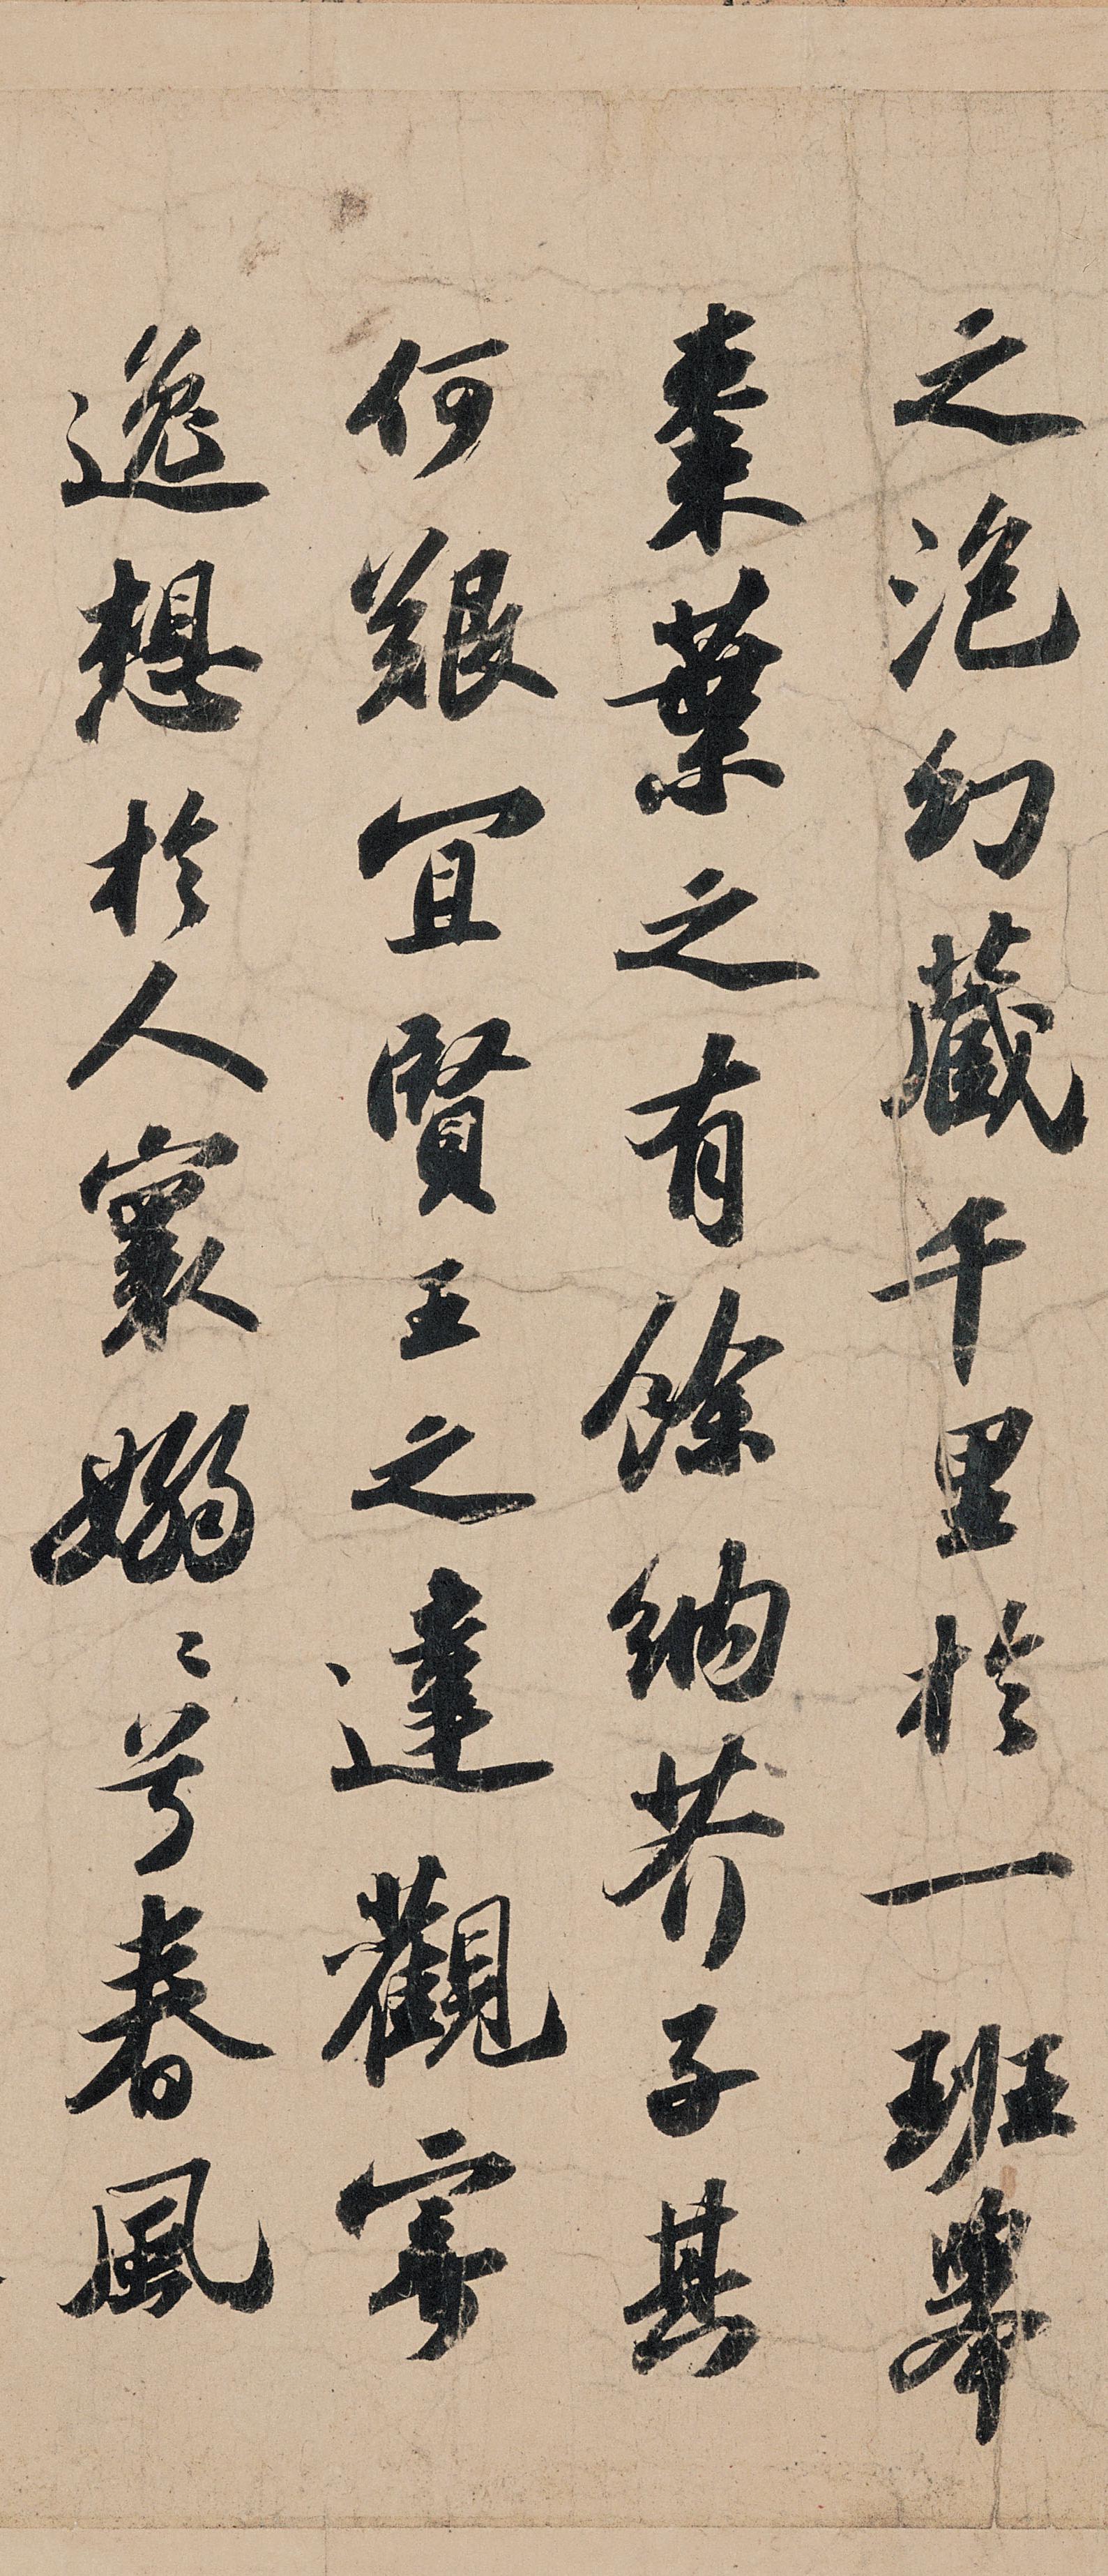 之泡幻藏千里於一班舉
棗葉之有餘納芥子其
何艱宜賢王之達觀寄
逸想於人寰嫋〻兮春風